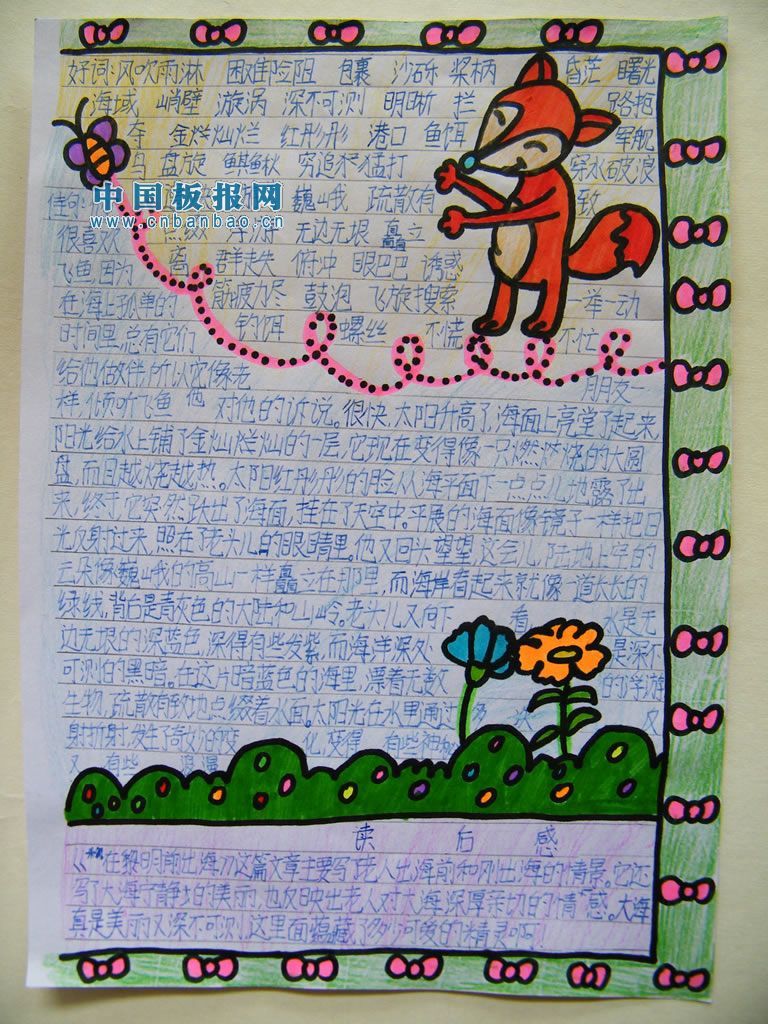 好词:风吹雨淋 困难险阻 包裹 沙砾 桨柄 昏茫 曙光
海域 峭壁 漩涡 深不可测 明晰 拦 路抱
夺 金烂灿烂 红彤彤 港口 鱼饵 军舰
鸟 盘旋 鲯鳅 穷追不猛打 穿水破浪
中国板报网
www.cnbanbao.cn
佳句: 巍峨 疏散有 致
很喜欢 点缀 浮游 无边无垠 矗立
飞鱼,因为 群 走失 俯冲 眼巴巴 诱惑
在海上孤单的 筋疲力尽 鼓泡 飞旋搜索 一举一动
时间里,总有它们 钓饵 螺丝 不慌 不忙
给他做伴,所以它像老 朋友一
样,倾听飞鱼 他 对他的诉说。很快,太阳升高了,海面上亮堂了起来,
阳光给水上铺了金灿烂灿的一层,它现在变得像一只燃燃烧的大圆
盘,而且越烧越热。太阳红彤彤的脸从海平面下一点点儿地露了出
来,终于,它突然跃出了海面,挂在了天空中。平展的海面像镜子一样把日
光反射过来,照在了老头儿的眼睛里。他又回头望望,这会儿,陆地上空的
云朵像巍峨的高山一样矗立在那里,而海岸看起来就像一道长长的
绿线,背后是青灰色的大陆和山岭。老头儿又向下 看 水是无
边无垠的深蓝色,深得有些发紫,而海洋深处 是深不
可测的黑暗。在这片暗蓝色的海里,漂着无数 的浮游
生物,疏散有致地点缀着水面。太阳光在水里通过多 次 又
射折射,发生了奇妙的变 化,变得 有些神秘
又 有些
读 后 感
《“在黎明前出海”》这篇文章主要写了老人出海前和刚出海的情景。它还
写了大海宁静的美丽,也反映出老人对大海深厚亲切的情感。大海
真是美丽又深不可测,这里面蕴藏了多少可爱的精灵啊!